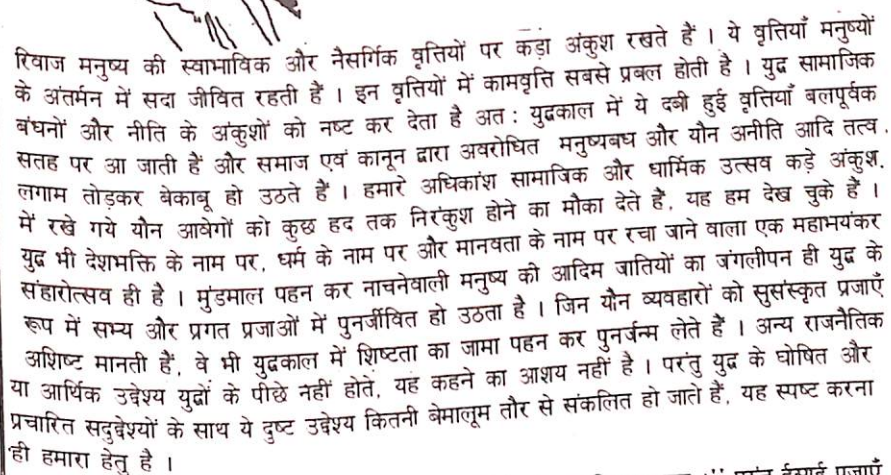 रिवाज मनुष्य की स्वाभाविक और नैसर्गिक वृत्तियों पर कड़ा अंकुश रखते हैं । ये वृत्तियाँ मनुष्यों
के अंतर्मन में सदा जीवित रहती हैं । इन वृत्तियों में कामवृत्ति सबसे प्रबल होती है । युद्ध सामाजिक
बंधनों और नीति के अंकुशों को नष्ट कर देता है अत : युद्धकाल में ये दबी हुई वृत्तियाँ बलपूर्वक
सतह पर आ जाती हैं और समाज एवं कानून द्वारा अवरोधित मनुष्यबध और यौन अनीति आदि तत्व .
लगाम तोड़कर बेकाबू हो उठते हैं । हमारे अधिकांश सामाजिक और धार्मिक उत्सव कड़े अंकुश.
में रखे गये यौन आवेगों को कुछ हद तक निरंकुश होने का मौका देते हैं, यह हम देख चुके हैं ।
युद्ध भी देशभक्ति के नाम पर, धर्म के नाम पर और मानवता के नाम पर रचा जाने वाला एक महाभयंकर
संहारोत्सव ही है । मुंडमाल पहन कर नाचनेवाली मनुष्य की आदिम जातियों का जंगलीपन ही युद्ध के
रूप में सभ्य और प्रगत प्रजाओं में पुनर्जीवित हो उठता है । जिन यौन व्यवहारों को सुसंस्कृत प्रजाएँ
अशिष्ट मानती हैं, वे भी युद्धकाल में शिष्टता का जामा पहन कर पुनर्जन्म लेते हैं । अन्य राजनैतिक
या आर्थिक उद्देश्य युद्धों के पीछे नहीं होते, यह कहने का आशय नहीं है । परंतु युद्ध के घोषित और
प्रचारित सदुद्देश्यों के साथ ये दुष्ट उद्देश्य कितनी बेमालूम तौर से संकलित हो जाते हैं, यह स्पष्ट करना
ही हमारा हेतु है ।